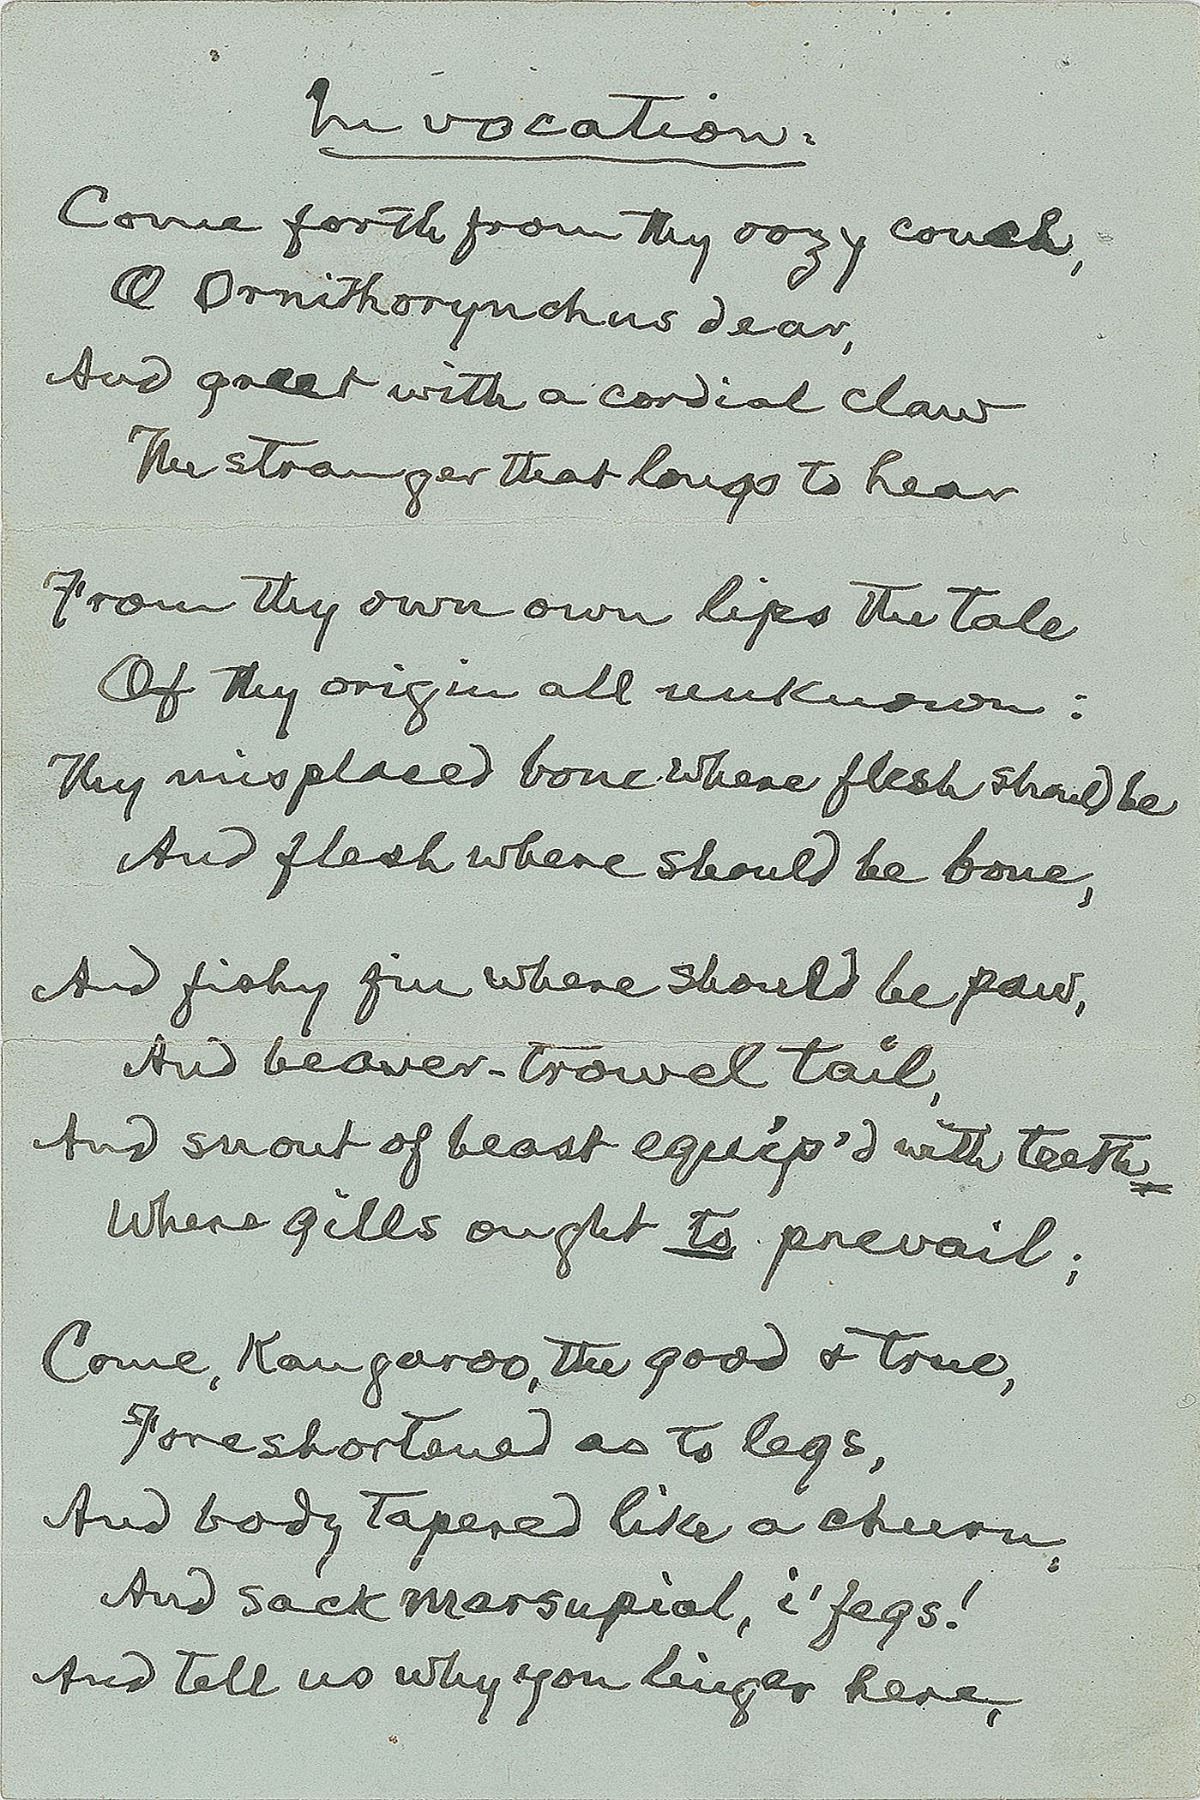 Invocation.
Come forth from thy oozy couch,
O Ornithorynchus dear,
And greet with a cordial claw
The stranger that longs to hear
From thy own own lips the tale
Of thy origin all unknown:
Thy misplaced bone where flesh should be
And flesh where should be bone,
And fishy fin where should be paw,
And beaver-trowel tail,
And snout of beast equip'd with teeth
Where gills ought to prevail;
Come, Kangaroo, the good & true,
Foreshortened as to legs,
And body tapered like a churn,
And sack marsupial, i' fegs!
And tell us why you linger here,